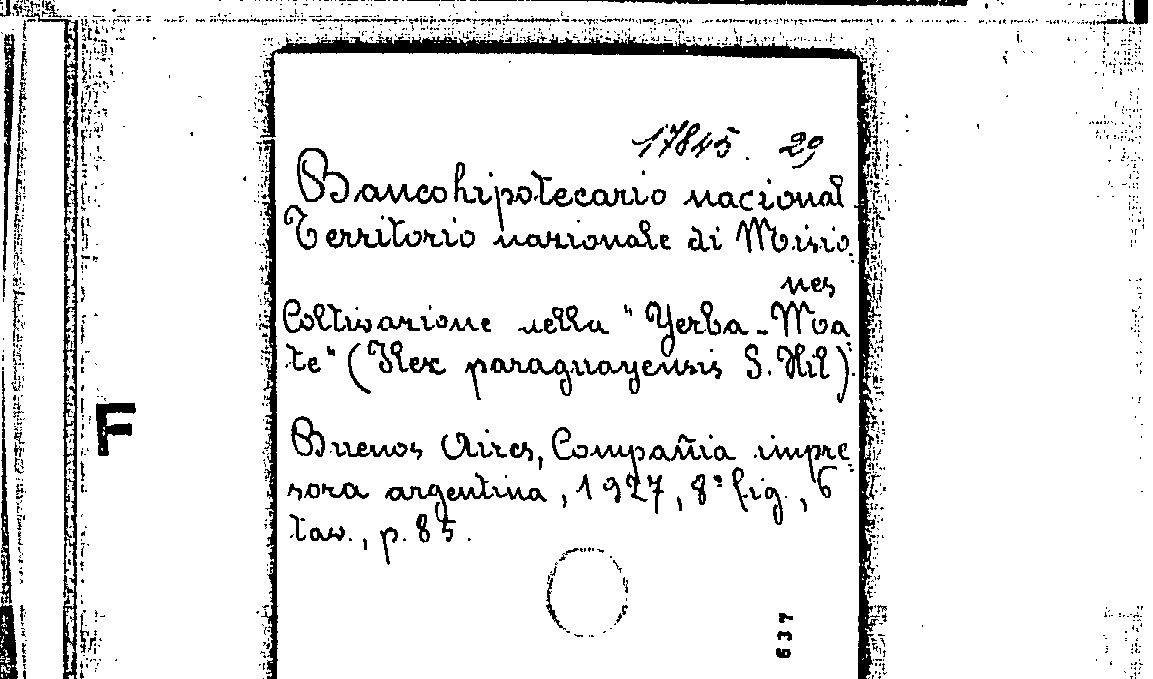 17845. 29
Bancohipotecario nacional
Territorio nazionale di Misio
nes
Coltivazione della "Yerba-Ma
te" (Ilex paraguayensis S. Hil).
Buenos Aires, Compañia impre
sora argentina, 1927, 8° fig., 6
tav., p. 85.
F
637